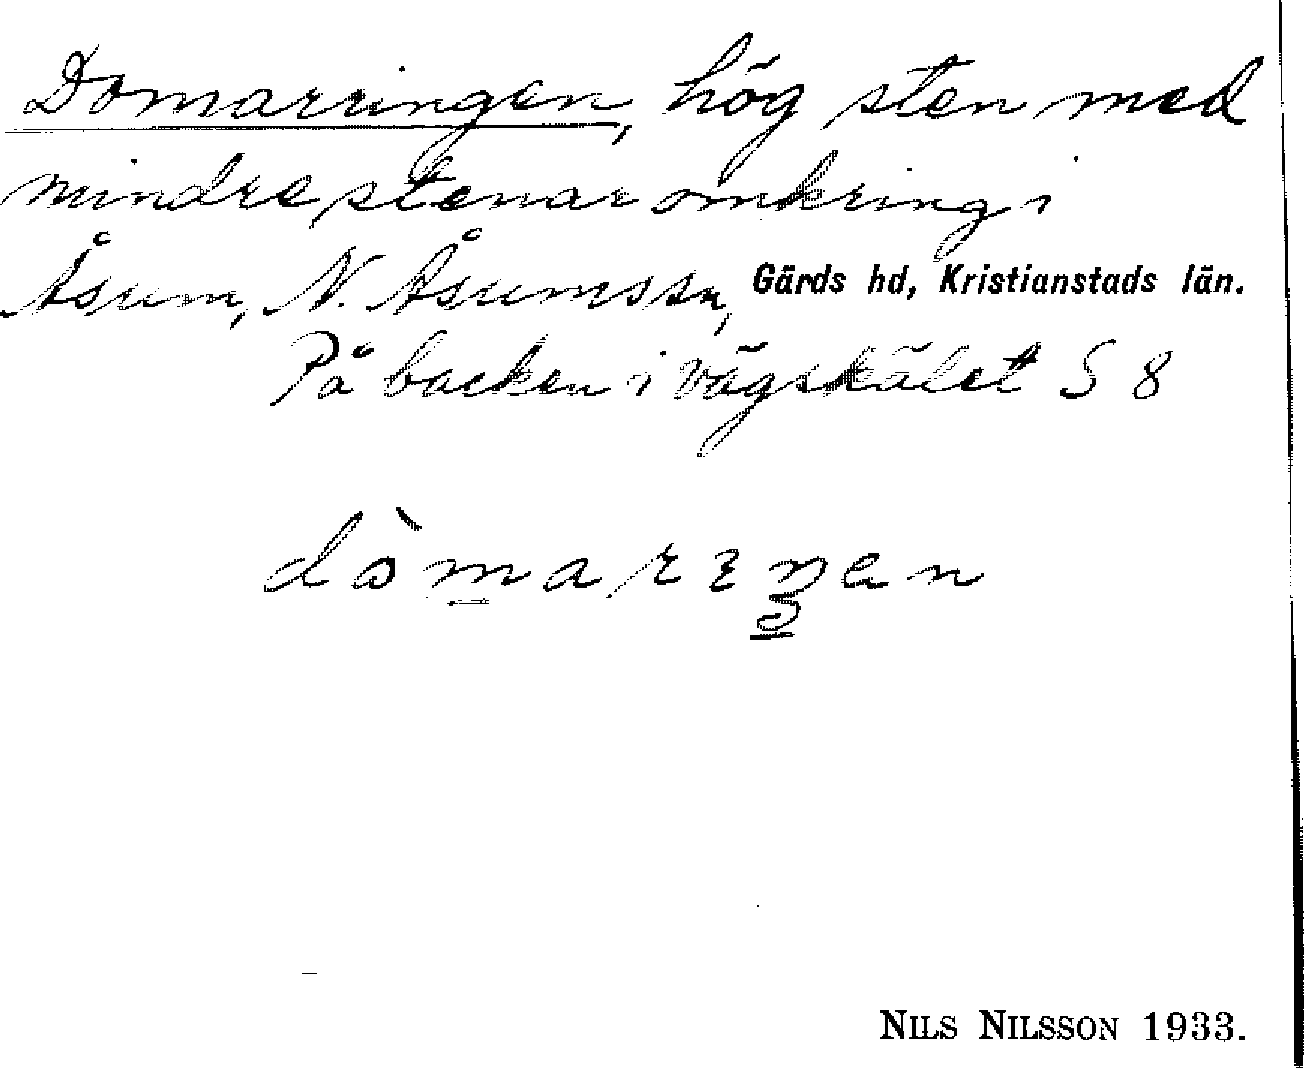 Domarringen, hög sten med
mindre stenar omkring i
Åsum, N. Åsums sn, Gärds hd, Kristianstads län.
På backen i vägskälet S 8
NILS NILSSON 1933.